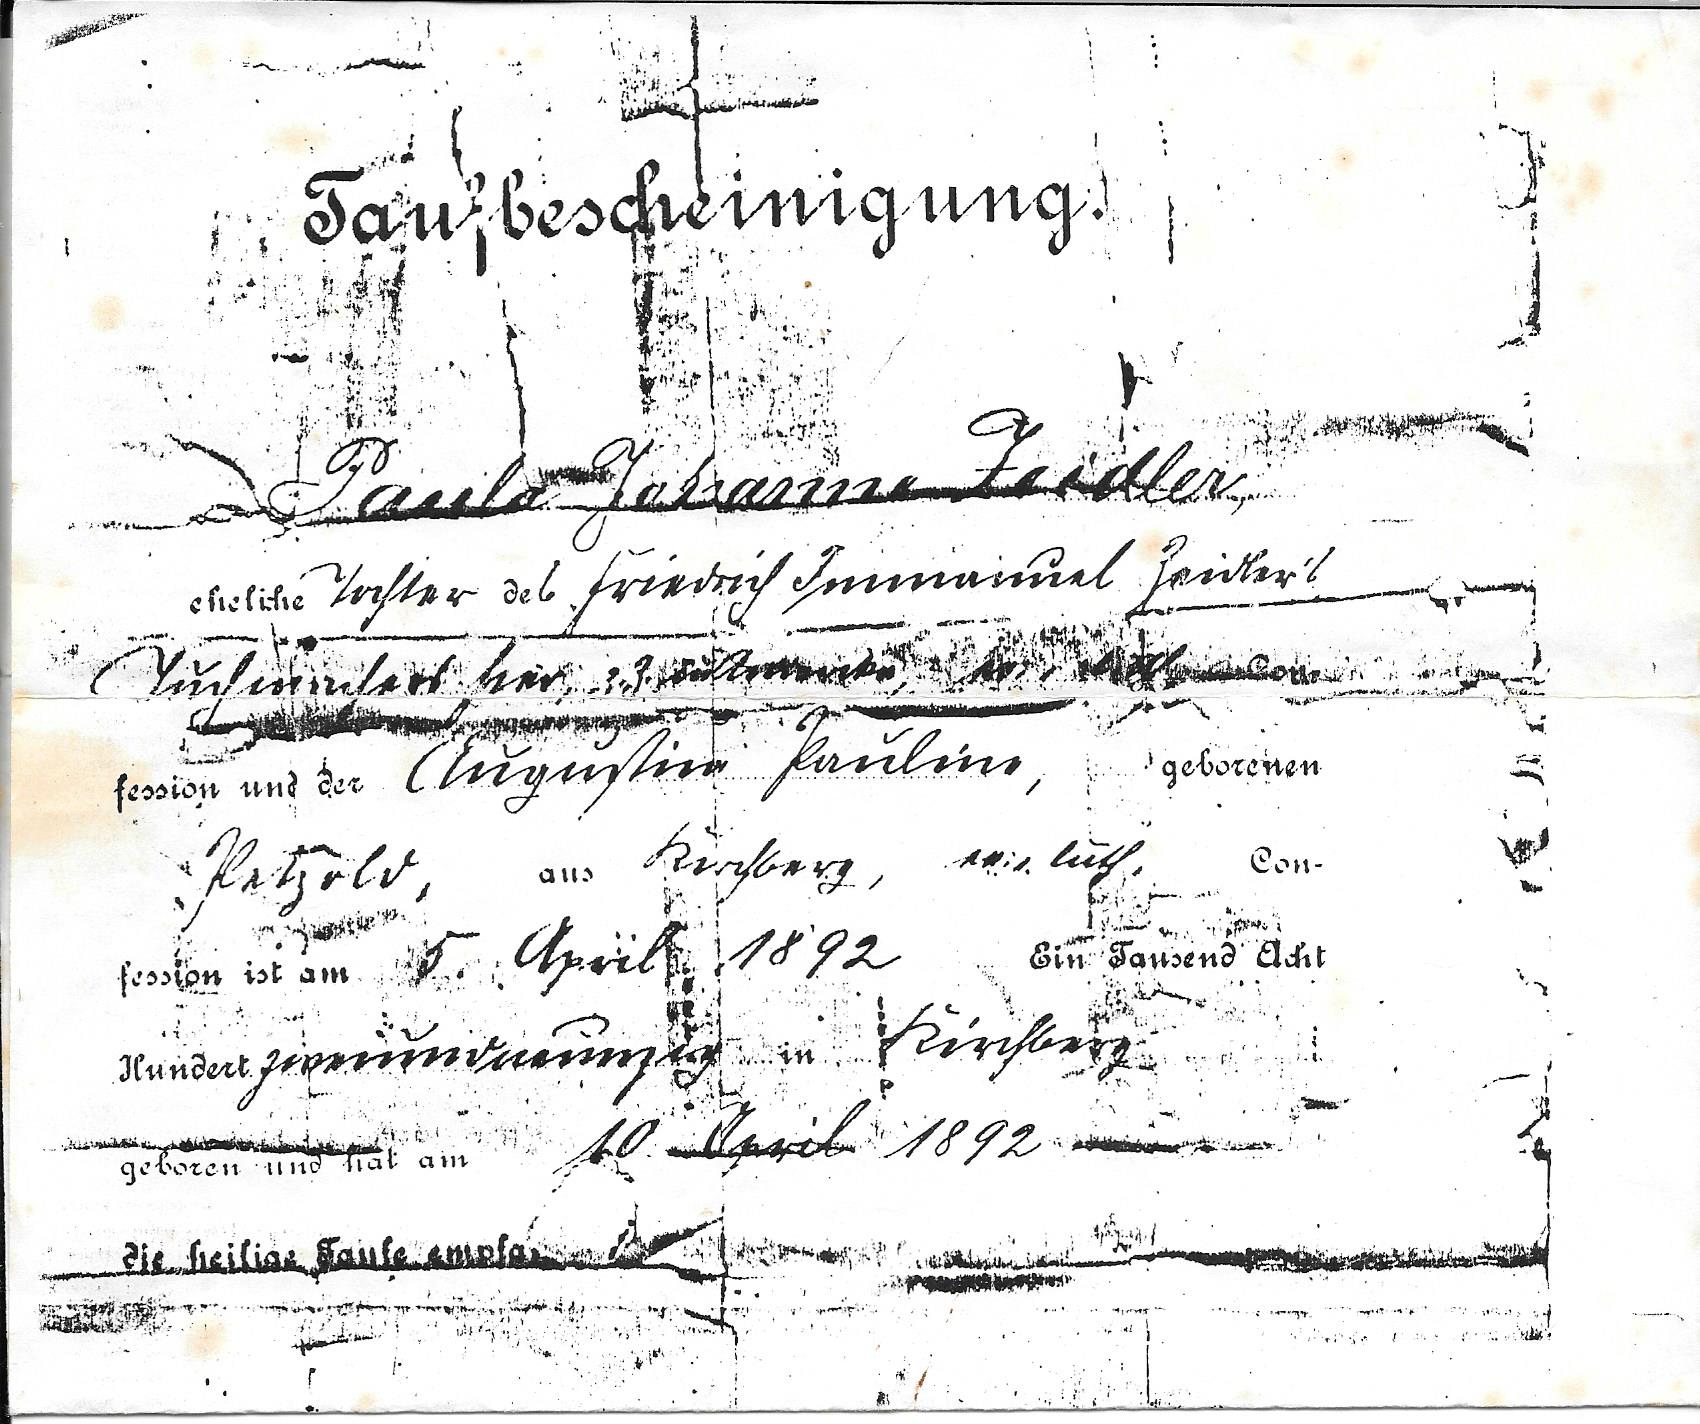 Taufbescheinigung.
Paula Johanne Zeidler,
eheliche Tochter des Friedrich Immanuel Zeidler's
Tuchmachers hier, Con-
fession und der Augustine Pauline, geborenen
Petzold, aus Kirchberg, ev. luth. Con-
fession ist am 5. April 1892 Ein Tausend Acht
Hundert zweiundneunzig in Kirchberg
geboren und hat am 10. April 1892
die heilige Taufe empfan